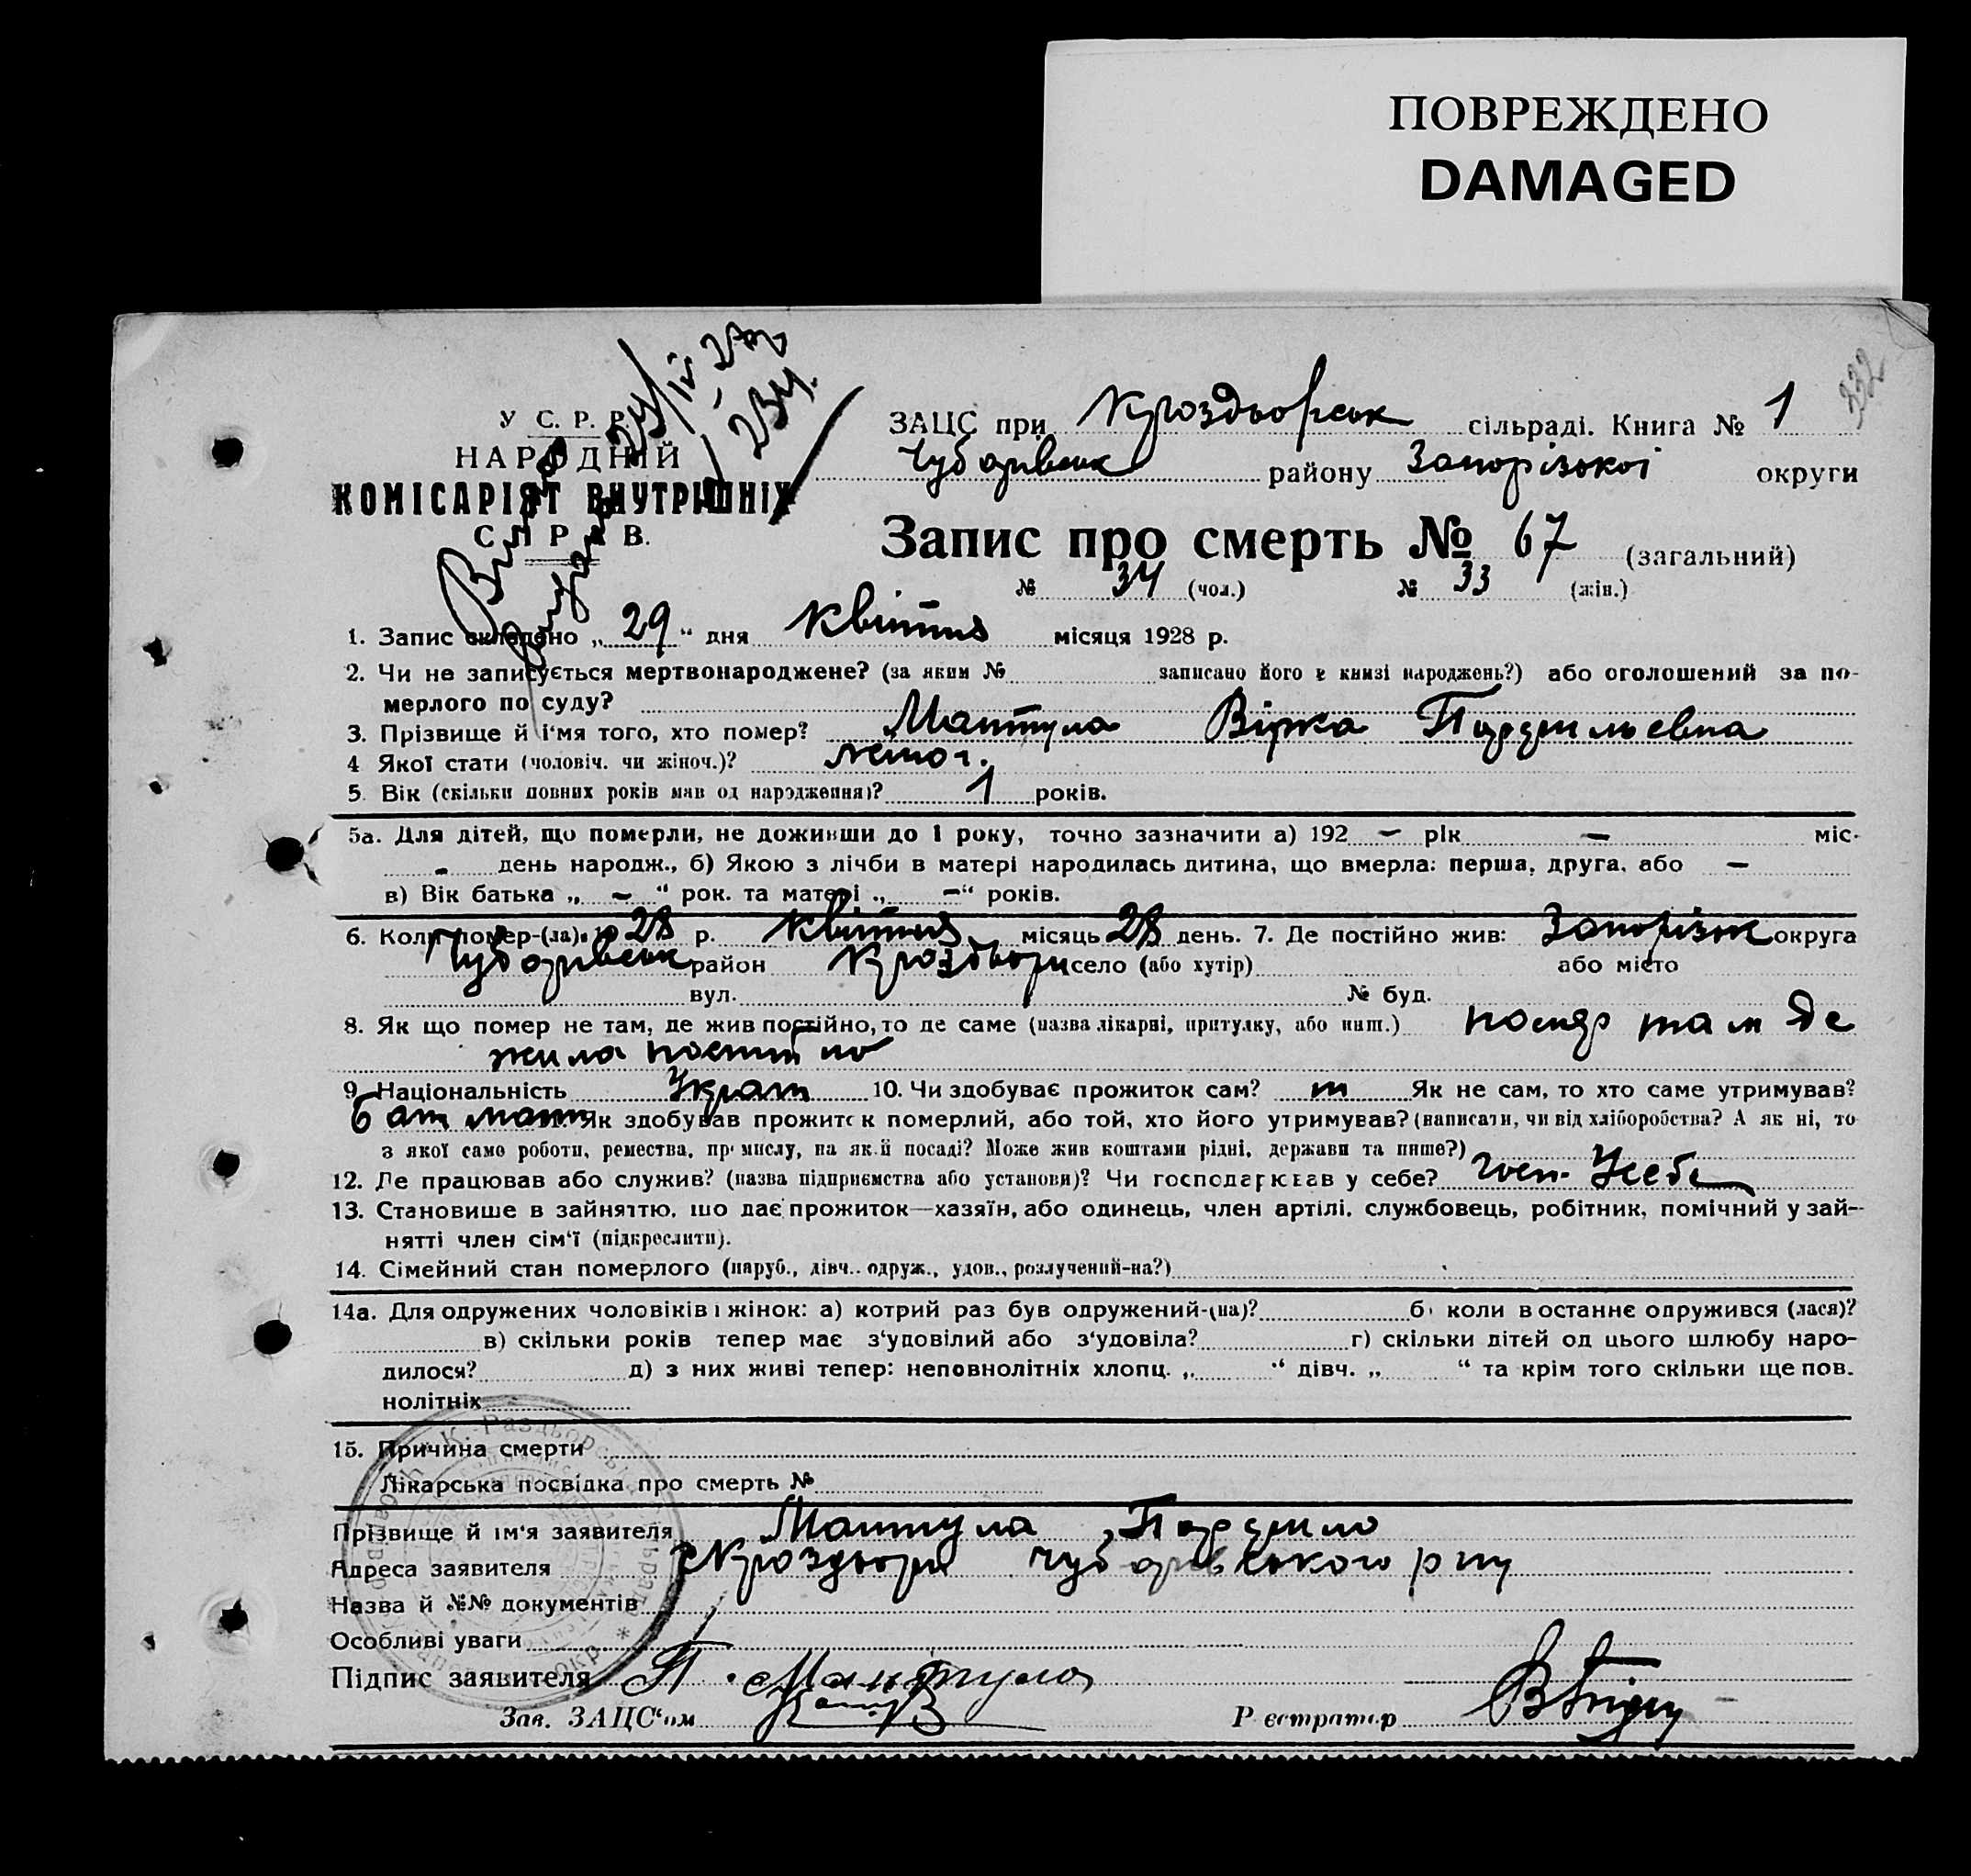 ПОВРЕЖДЕНО
DAMAGED
332
У С. Р. Р.
НАРОДНІЙ
КОМІСАРІЯТ ВНУТРІШНІХ
СПРАВ.
234
ЗАЦС при Кроздьорськ сільраді. Книга № 1
Чубарівськ району Запорізької округи
Запис про смерть № 67 (загальний)
№ 34 (чол.) № 33 (жін.)
1. Запис складено „ 29 “ дня квітня місяця 1928 р.
2. Чи не записується мертвонароджене? (за яким № записано його в книзі народжень?) або оголошений за по-
мерлого по суду?
3. Прізвище й і‘мя того, хто помер? Маттула Вірка
4 Якої стати (чоловіч. чи жіноч.)?
5. Вік (скільки повних років мав од народження)? 1 років.
5а. Для дітей, що померли, не доживши до 1 року, точно зазначити а) 192 – рік – міс-
– день народж., б) Якою з лічби в матері народилась дитина, що вмерла: перша, друга, або –
в) Вік батька „ – “ рок. та матері „ – “ років.
6. Коли помер-(ла): 1928 р. квітня місяць 28 день. 7. Де постійно жив: Запорізьк округа
Чубарівськ район Кроздьори село (або хутір) або місто
вул. № буд.
8. Як що помер не там, де жив постійно, то де саме (назва лікарні, притулку, або инш.) помер там де
жила постійно
9. Національність Украт 10. Чи здобуває прожиток сам? Як не сам, то хто саме утримував?
бат мат Як здобував прожиток померлий, або той, хто його утримував? (написати, чи від хліборобства? А як ні, то
з якої само роботи, ремества, промислу, на якій посаді? Може жив коштами рідні, держави та инше?)
12. Де працював або служив? (назва підприємства або установи)? Чи господаркував у себе? госп. Усебе
13. Становище в зайняттю, що дає прожиток—хазяїн, або одинець, член артілі, службовець, робітник, помічний у зай-
нятті член сім‘ї (підкреслити).
14. Сімейний стан померлого (паруб., дівч.. одруж., удов., розлучений-на?)
14а. Для одружених чоловіків і жінок: а) котрий раз був одружений-(на)? б) коли востаннє одружився (лася)?
в) скільки років тепер має з‘удовілий або з‘удовіла? г) скільки дітей од цього шлюбу наро-
дилося? д) з них живі тепер: неповнолітніх хлопц. „ “ дівч. „ “ та крім того скільки ще пов.
нолітніх
15. Причина смерти
Лікарська посвідка про смерть №
Прізвище й ім‘я заявителя Маттула
Адреса заявителя Кроздьори Чубарівського р ну
Назва й №№ документів
Особливі уваги
Підпис заявителя П. Маттула
Зав. ЗАЦС‘ом
Реєстратор